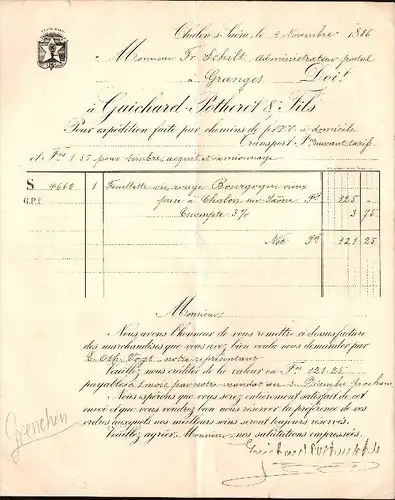 Chalon s/ Saône, le 4 Novembre 1886
Monsieur Fr. Schilt administrateur postal
à Granges Doit
à Guichard-Potheret & Fils
Pour expédition faite par chemins de fer à domicile
transport suivant tarif
et Frs 1.55 pour timbre, acquit et camionnage
S 4660 1 Feuillette vin rouge Bourgogne vieux
G.P.F. pris à Chalon sur Saône Fs 125 "
Escompte 3% 3 75
Net Fs 121 25
Monsieur,
Nous avons l'honneur de vous remettre ci dessus facture
des marchandises que vous avez bien voulu nous demander par
notre représentant
Veuillez nous créditer de la valeur en Frs 121.25
payables à 1 mois par notre mandat au Décembre prochain
Nous espérons que vous serez entièrement satisfait de cet
envoi et que vous voudrez bien nous réserver la préférence de vos
ordres auxquels nos meilleurs soins seront toujours réservés.
Veuillez agréer, Monsieur, nos salutations empressées.
Grenchen
Guichard Potheret & fils